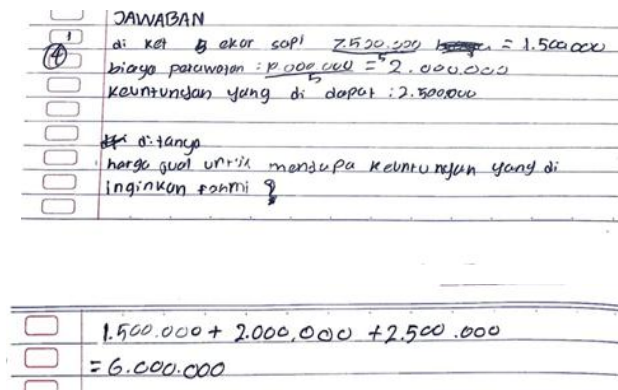 JAWABAN
1
④ di ket 5 ekor sapi 7.500.000 = 1.500.000
5
biaya perawatan : 10.000.000 = 2.000.000
5
Keuntungan yang di dapat : 2.500.000
di tanya
harga jual untuk mendapa keuntungan yang di
inginkan fahmi ?
1.500.000 + 2.000.000 + 2.500.000
= 6.000.000